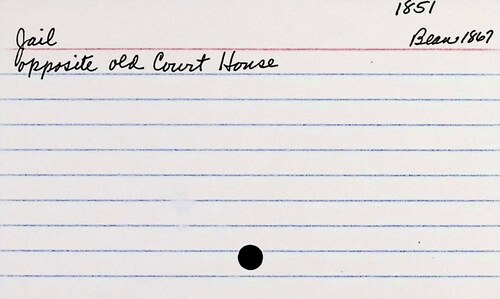 1851
Jail
Bean 1867
opposite old Court House